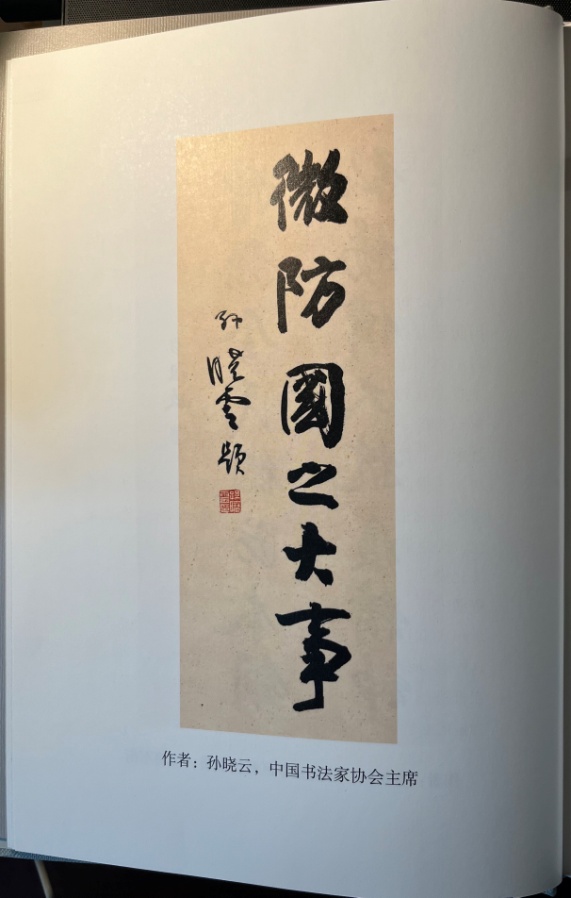 微防國之大事
孙晓云题
作者：孙晓云，中国书法家协会主席